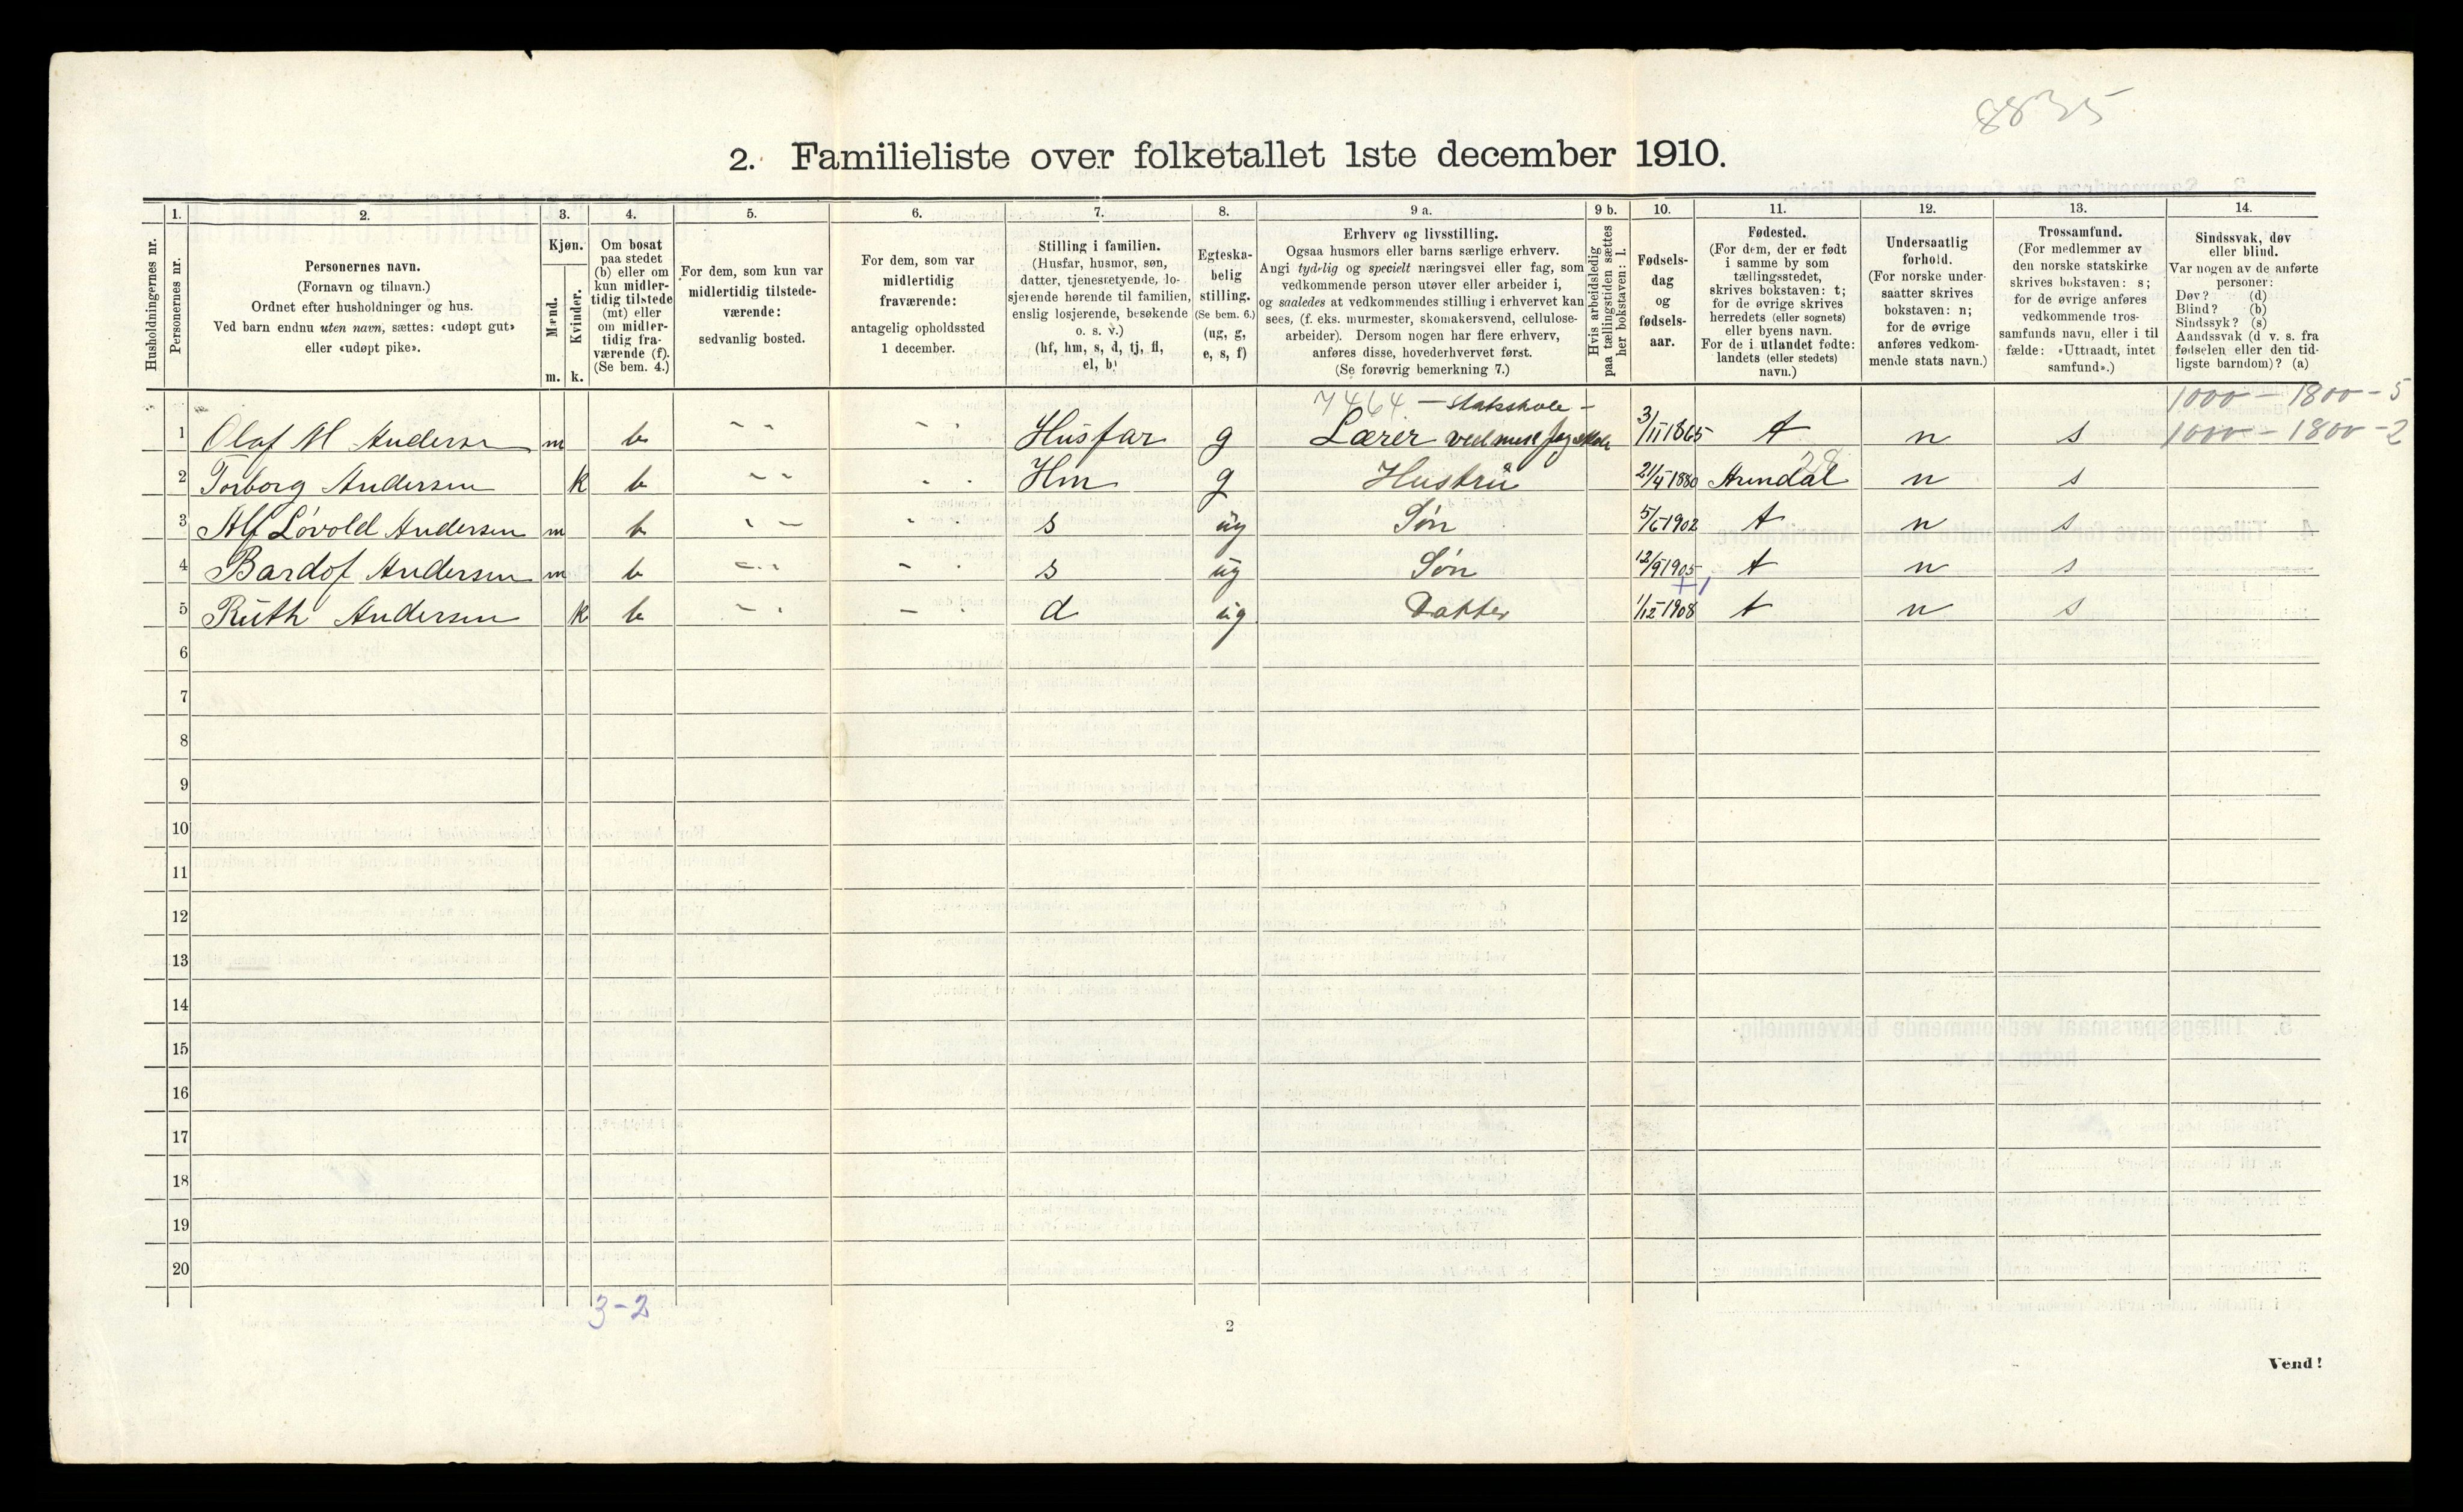 8835
2. Familieliste over folketallet 1ste december 1910.
1. 2. 3. 4. 5. 6. 7. 8. 9 a. 9 b. 10. 11. 12. 13. 14.
Husholdningernes nr.
Personernes nr.
Personernes navn.
(Fornavn og tilnavn.)
Ordnet efter husholdninger og hus.
Ved barn endnu uten navn, sættes: «udøpt gut»
eller «udøpt pike».
Kjøn.
Mænd.
Kvinder.
m. k.
Om bosat
paa stedet
(b) eller om
kun midler-
tidig tilstede
(mt) eller
om midler-
tidig fra-
værende (f).
(Se bem. 4.)
For dem, som kun var
midlertidig tilstede-
værende:
sedvanlig bosted.
For dem, som var
midlertidig
fraværende:
antagelig opholdssted
1 december.
Stilling i familien.
(Husfar, husmor, søn,
datter, tjenestetyende, lo-
sjerende hørende til familien,
enslig losjerende, besøkende
o. s. v.)
(hf, hm, s, d, tj, fl,
el, b)
Egteska-
belig
stilling.
(Se bem. 6.)
(ug, g,
e, s, f)
Erhverv og livsstilling.
Ogsaa husmors eller barns særlige erhverv.
Angi tydelig og specielt næringsvei eller fag, som
vedkommende person utøver eller arbeider i,
og saaledes at vedkommendes stilling i erhvervet kan
sees, (f. eks. murmester, skomakersvend, cellulose-
arbeider). Dersom nogen har flere erhverv,
anføres disse, hovederhvervet først.
(Se forøvrig bemerkning 7.)
Hvis arbeidsledig
paa tællingstiden sættes
her bokstaven: l.
Fødsels-
dag
og
fødsels-
aar.
Fødested.
(For dem, der er født
i samme by som
tællingsstedet,
skrives bokstaven: t;
for de øvrige skrives
herredets (eller sognets)
eller byens navn.
For de i utlandet fødte:
landets (eller stedets)
navn.)
Undersaatlig
forhold.
(For norske under-
saatter skrives
bokstaven: n;
for de øvrige
anføres vedkom-
mende stats navn.)
Trossamfund.
(For medlemmer av
den norske statskirke
skrives bokstaven: s;
for de øvrige anføres
vedkommende tros-
samfunds navn, eller i til-
fælde: «Uttraadt, intet
samfund».)
Sindssvak, døv
eller blind.
Var nogen av de anførte
personer:
Døv? (d)
Blind? (b)
Sindssyk? (s)
Aandssvak (d v. s. fra
fødselen eller den tid-
ligste barndom)? (a)
7464 – Statsskole – 1000 – 1800 – 5
1 Olaf M Andersen m b - - - - Husfar g Lærer 3/11 1865 t n s 1000 – 1800 – 2
28
2 Torborg Andersen k b - - - - Hm g Hustru 21/5 1880 Arendal n s
3 Alf Løvold Andersen m b - - - - s ug Søn 5/6 1902 t n s
4 Bardof Andersen m b - - - - s ug Søn 12/9 1905 t n s
+1
5 Ruth Andersen k b - - - d ug Datter 1/12 1908 t n s
6
7
8
9
10
11
12
13
14
15
16
17
18
19
20
3-2
2
Vend!